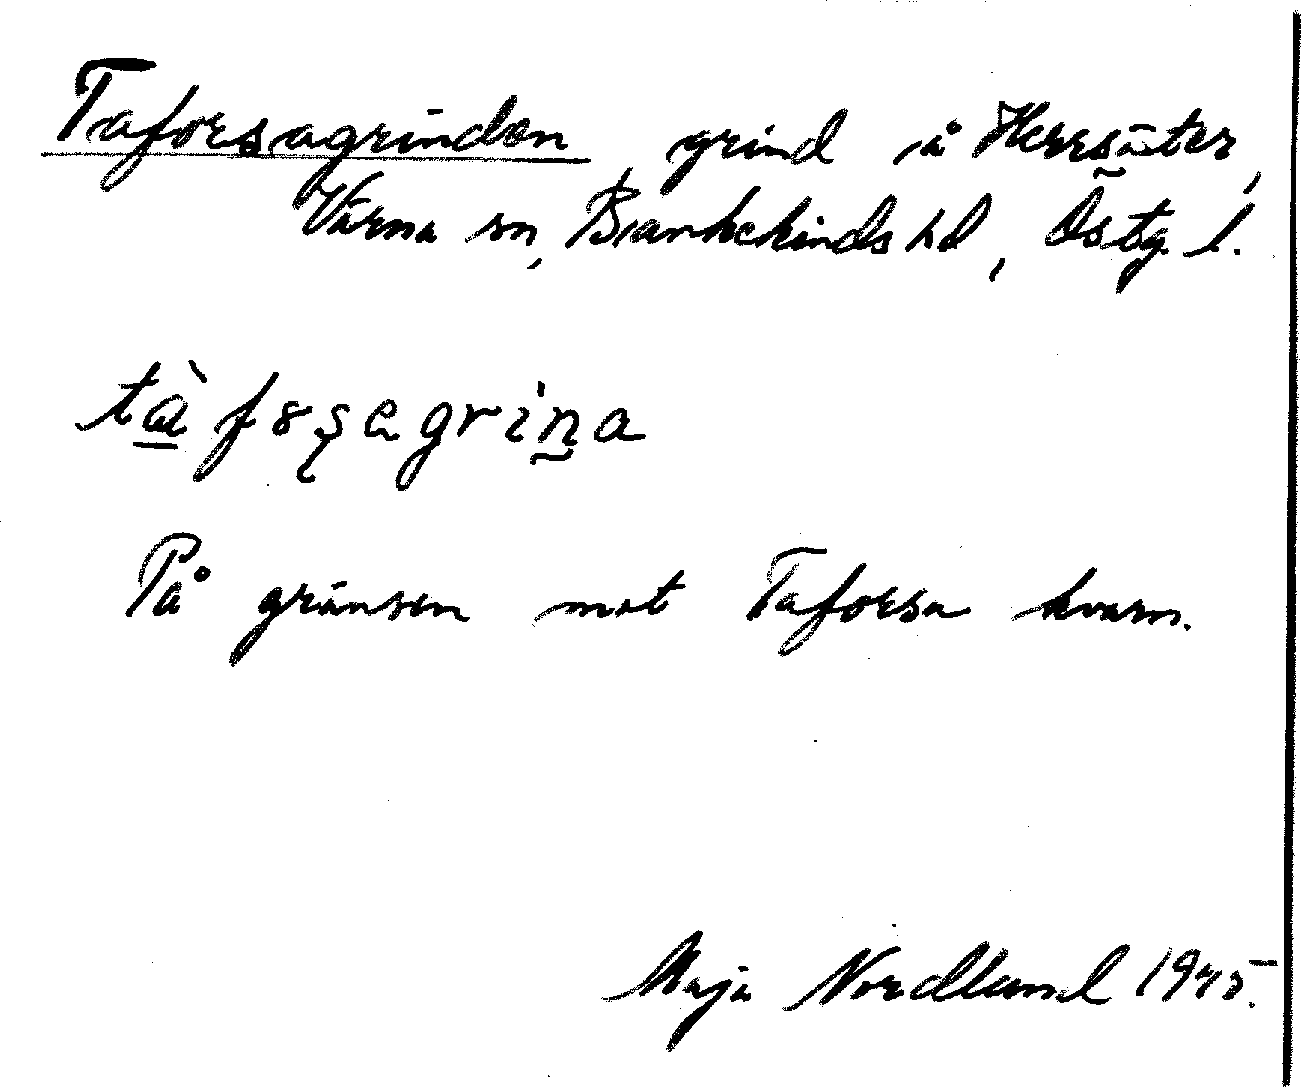 Taforsagrinden grind i å Herrsäter,
Värna sn, Bankekinds hd, Östg. l.
tàfɤʂegrìṇa
På gränsen mot Taforsa kvarn.
Maja Nordlund 1945.